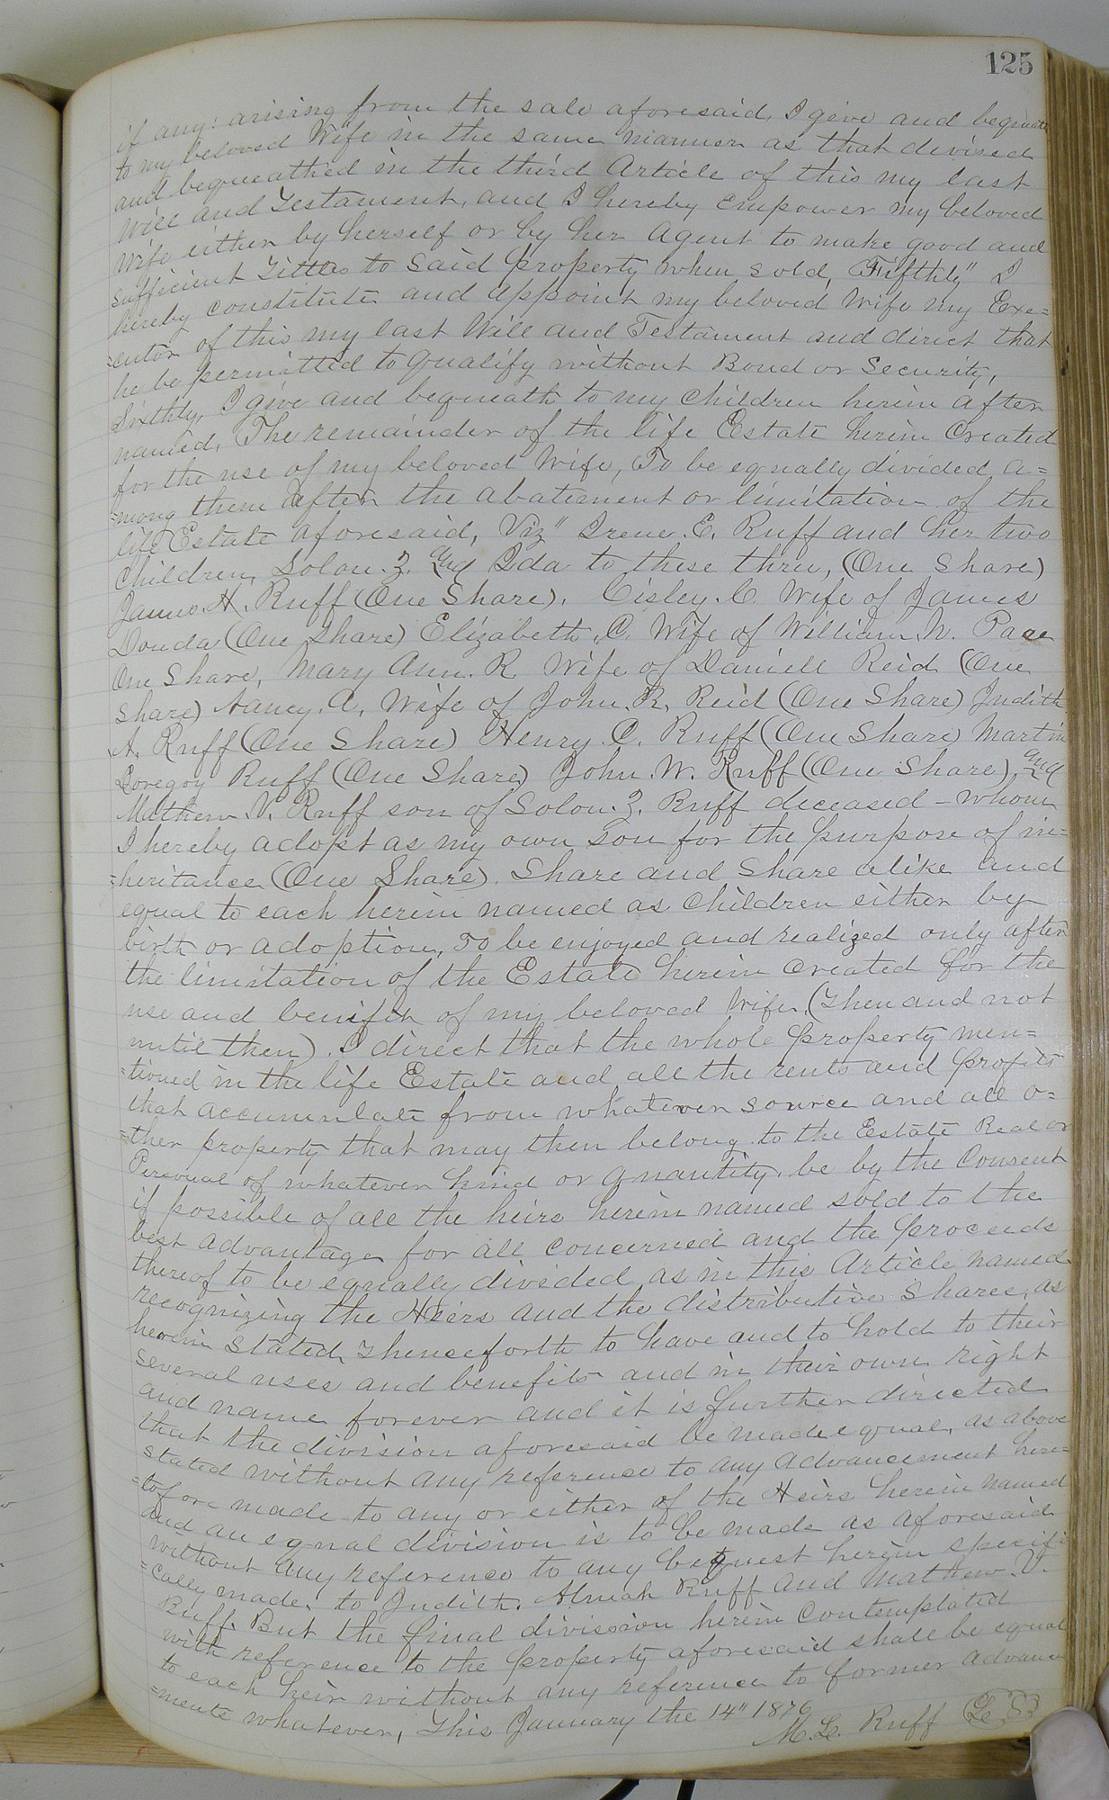 125
if any: arising from the sale aforesaid, I give and bequeath
to my beloved Wife in the same manner as that devised
and bequeathed in the third Article of this my last
Will and Testament, and I hereby empower my beloved
Wife either by herself or by her Agent to make good and
sufficient Tittles to said property when sold, "Fifthly" I
hereby constitute and appoint my beloved Wife my Exe=
=cutor of this my last Will and Testament and direct that
he be permitted to qualify without Bond or Security,
Sixthly, I give and bequeath to my children herein after
named, The remainder of the life Estate herein Created
for the use of my beloved Wife, To be equally divided a=
=mong them after the abatement or limitation of the
life Estate aforesaid, Viz" Irene. E. Ruff and her two
Children, Solon. Z. and Ida to these three, (One Share)
James. H. Ruff (One Share). Cisley. C. Wife of James
Donda (One Share) Elizabeth. C. Wife of William. N. Pace
One Share, Mary Ann. R. Wife of Daniell Reid (One
Share) Nancy. A. Wife of John. R. Reid (One Share) Judith
A. Ruff (One Share) Henry. C. Ruff (One Share) Martin
Ruff (One Share) John. W. Ruff (One Share), and
Mathew. V. Ruff son of Solon. Z. Ruff deceased - whom
I hereby adopt as my own Son for the purpose of in=
=heritance (One Share). Share and Share alike and
equal to each herein named as Children either by
birth or adoption, To be enjoyed and realized only after
the limitation of the Estate herein created for the
use and benifit of my beloved Wife, (Then and not
until then). I direct that the whole property men=
=tioned in the life Estate and all the rents and profits
that accumulate from whatever source and all o=
=ther property that may then belong to the Estate Real or
Personal of whatever kind or quantity, be by the Consent
if possible of all the heirs herein named sold to the
best advantage for all concerned and the proceeds
thereof to be equally divided, as in this Article named
recognizing the Heirs and the distributive Shares, as
herein Stated, Thenceforth to have and to hold to their
several uses and benefits and in their own right
and name forever and it is further directed
that the division aforesaid be made equal, as above
stated without any reference to any advancement here=
=tofore made to any or either of the Heirs herein named
and an equal division is to be made as aforesaid
without any reference to any bequest herein specifi
=cally made, to Judith. Almah Ruff and Mathew. V.
Ruff. But the final division herein Contemplated
with reference to the property aforesaid shall be equal
to each heir without any reference to former advance
=ments whatever, This January the 14" 1876
M. L. Ruff (L.S.)